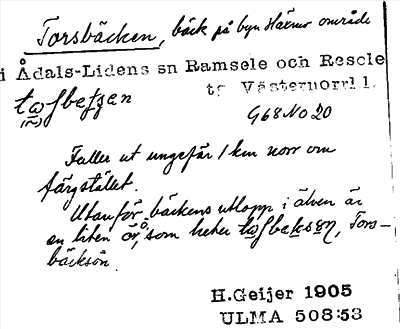 Torsbäcken, bäck på byn Härnes område
i Ådals-Lidens sn Ramsele och Resele
tg Västernorrl l.
G68No20
Faller ut ungefär 1 km norr om
färgstället.
Utanför bäckens utlopp i älven är
en liten ö, som heter Tors-
bäcksön.
H.Geijer 1905
ULMA 508:53